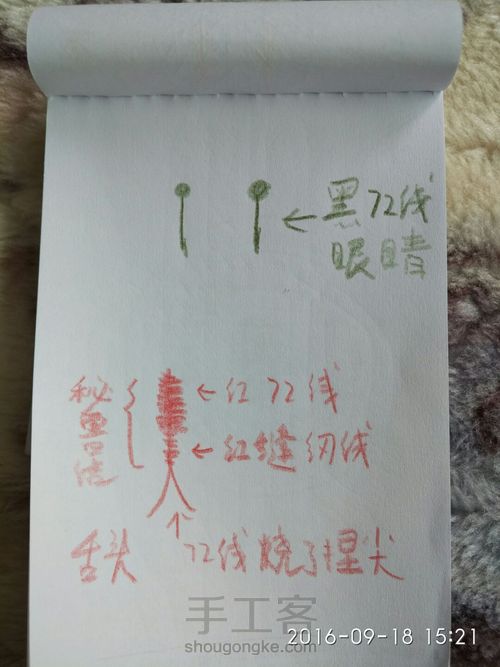 ← 黑72线
眼睛
← 红72线
← 红缝纫线
秘鲁结
舌头 72线烧了捏尖
手工客
shougongke.com
2016-09-18 15:21